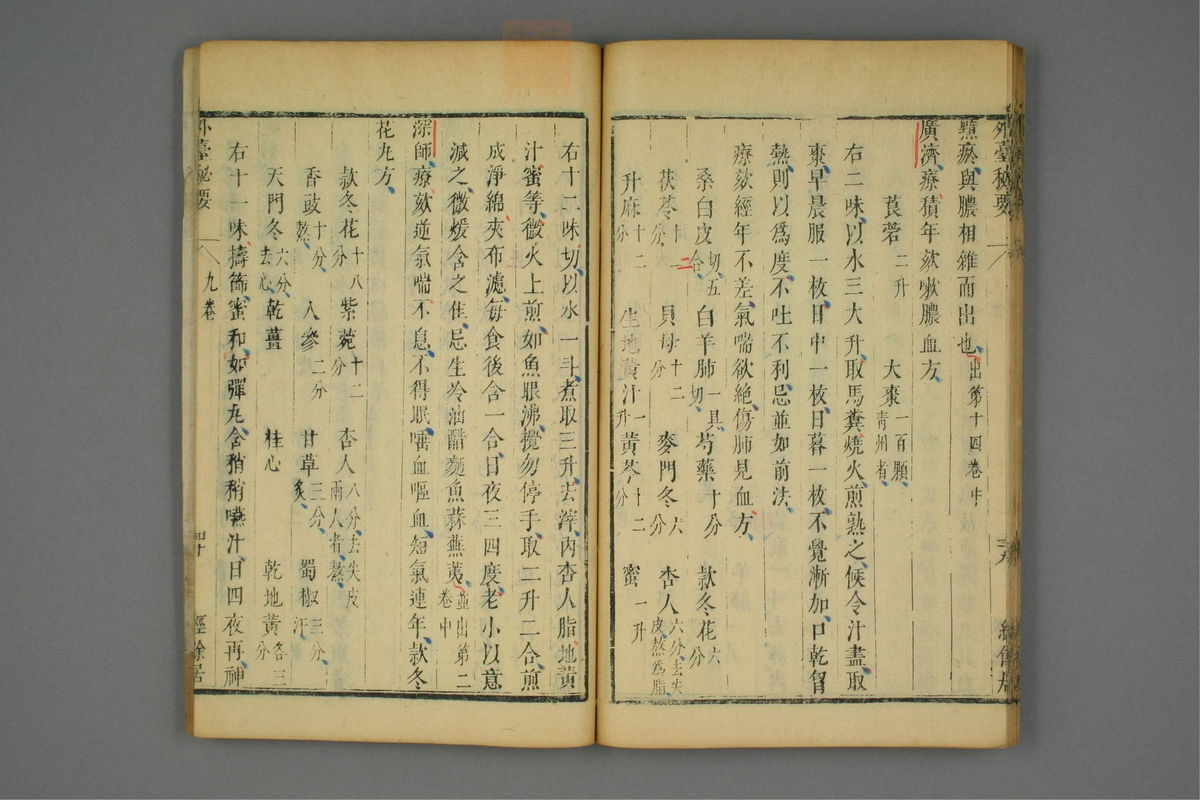 外臺秘要
黳瘀與膿相雜而出也出第十四卷中
廣濟療積年欬嗽膿血方
莨菪二升 大棗一百顆青州者
右二味以水三大升取馬糞燒火煎熟之候令汁盡取
棗早晨服一枚日中一枚日暮一枚不覺漸加口乾胷
熱則以爲度不吐不利忌並如前法
療欬經年不差氣喘欲絶傷肺見血方
桑白皮切五合 白羊肺一具切 芍藥十分 款冬花六分
茯苓十一分 貝母十二分 麥門冬六分 杏人六分去尖皮熬爲脂
升麻十二分 生地黃汁一升 黃芩十二分 蜜一升
右十二味切以水一斗煮取三升去滓內杏人脂地黃
汁蜜等微火上煎如魚眼沸攪勿停手取二升二合煎
成淨綿夾布濾每食後含一合日夜三四度老小以意
減之微煖含之佳忌生冷油醋麪魚蒜蕪荑並出第二卷中
深師療欬逆氣喘不息不得眠唾血嘔血短氣連年款冬
花丸方
款冬花十八分 紫菀十二分 杏人八分去尖皮兩人者熬
香豉十分熬 人參二分 甘草三分炙 蜀椒三分汗
天門冬六分去心 乾薑 桂心 乾地黃各三分
右十一味擣篩蜜和如彈丸含稍稍嚥汁日四夜再神
外臺秘要 九卷 四十 經餘居